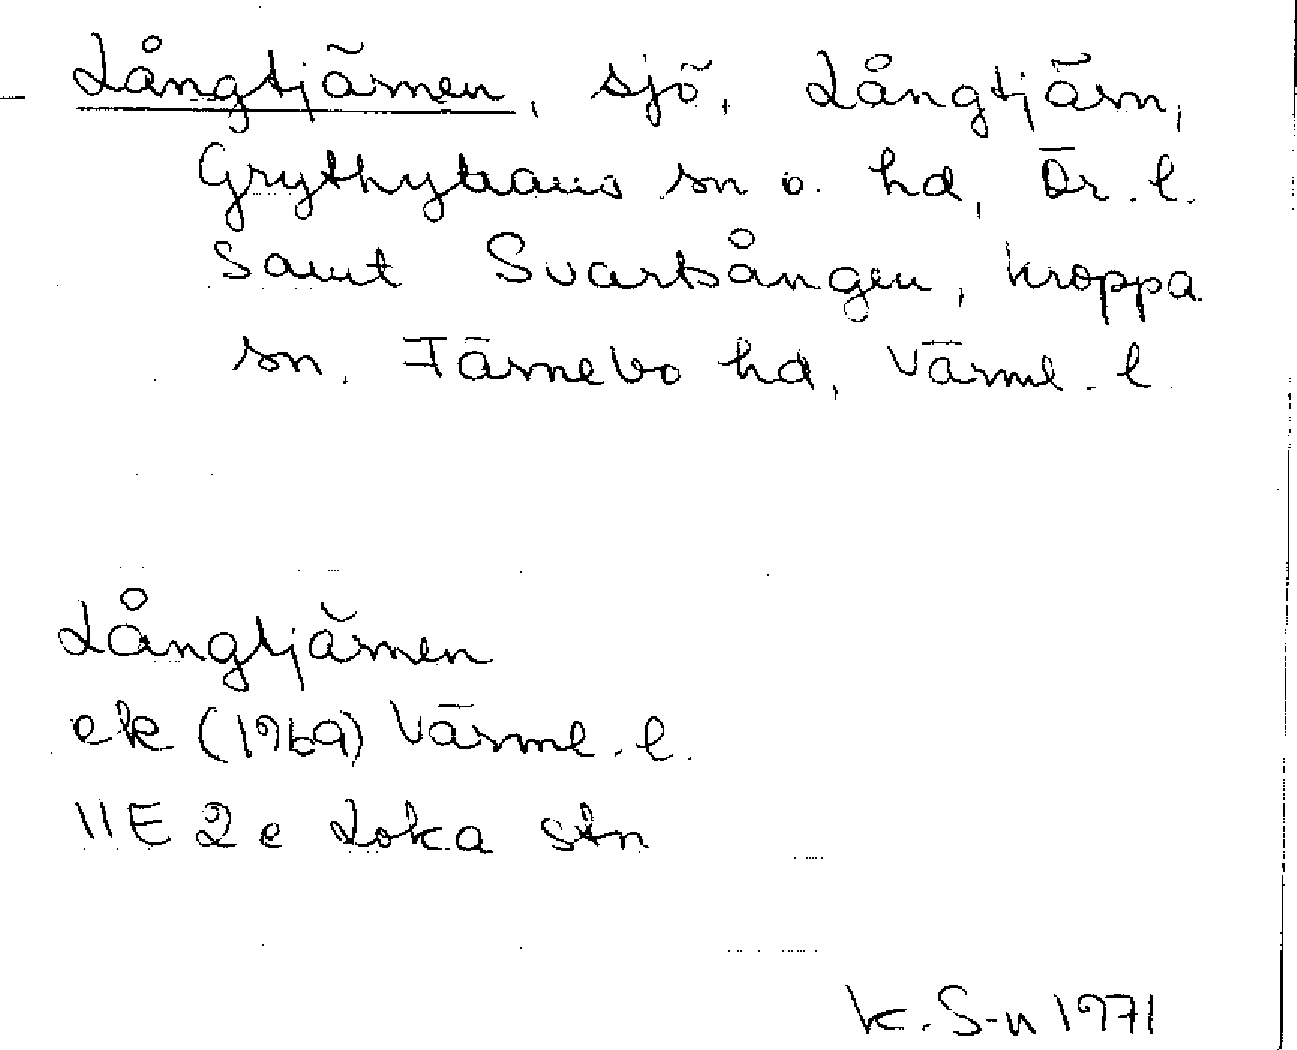 Långtjärnen, sjö, Långtjärn,
Grythyttans sn o. hd, Ör. l.
samt Svartsången, Kroppa
sn, Färnebo hd, Värml. l.
Långtjärnen
ek (1969) Värml. l.
11E 2e Loka stn
K. S-n 1971